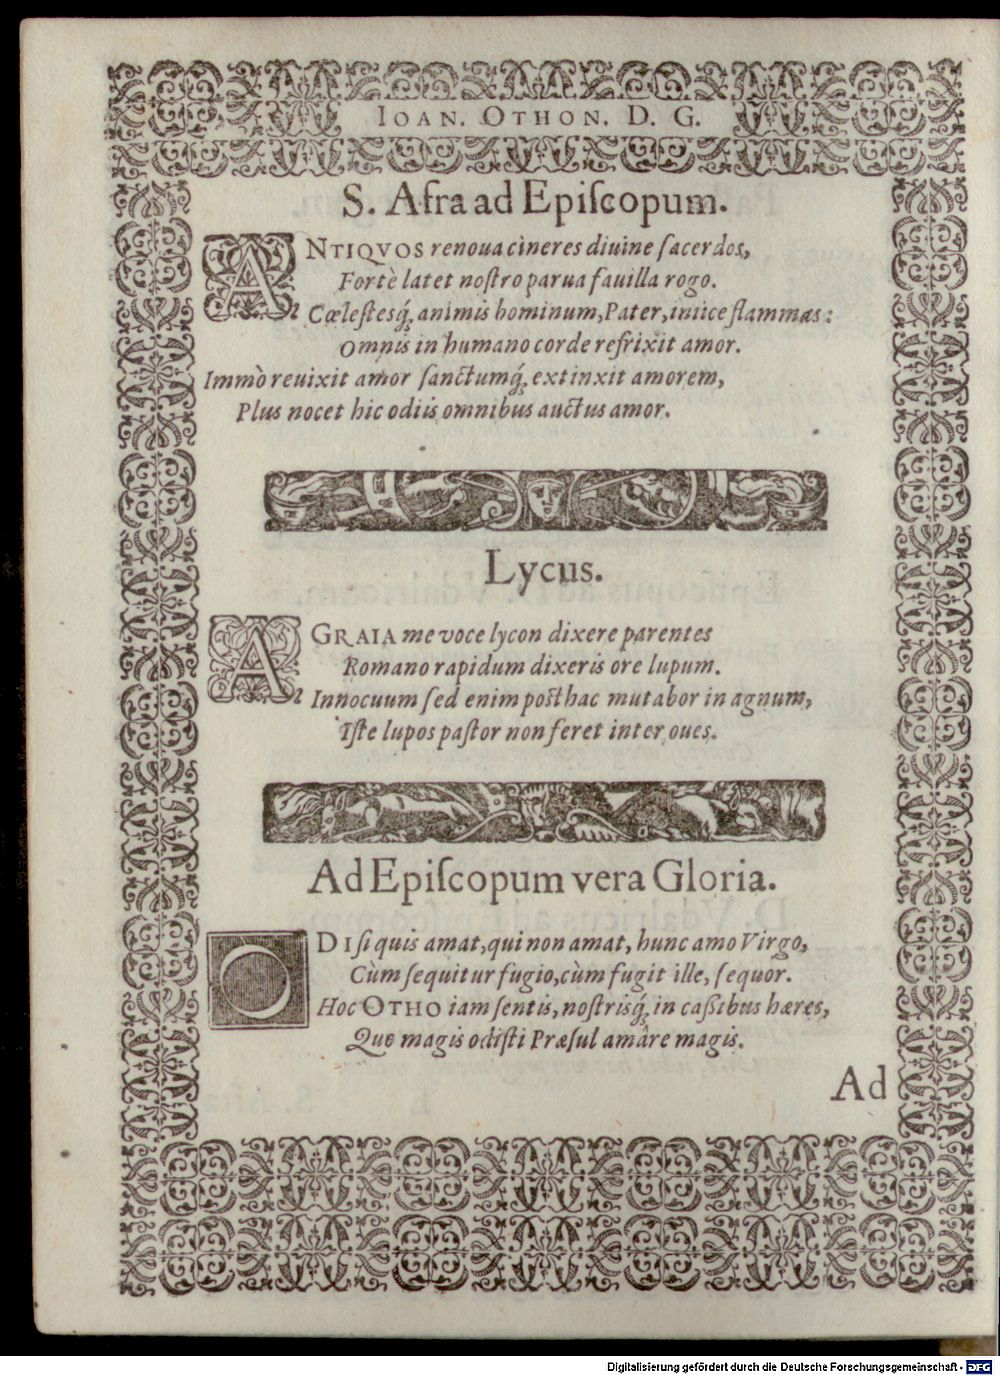 IOAN. OTHON. D. G.
S. Afra ad Epiſcopum.
ANTIQVOS renoua cineres diuine ſacerdos,
Fortè latet noſtro parua fauilla rogo.
Cœleſtesq́; animis hominum, Pater, iniice flammas:
Omnis in humano corde refrixit amor.
Immò reuixit amor ſanctumq́; extinxit amorem,
Plus nocet hic odiis omnibus auctus amor.
Lycus.
A GRAIA me voce lycon dixere parentes
Romano rapidum dixeris ore lupum.
Innocuum ſed enim poſthac mutabor in agnum,
Iſte lupos paſtor non feret inter oues.
Ad Epiſcopum vera Gloria.
ODI ſi quis amat, qui non amat, hunc amo Virgo,
Cùm ſequitur fugio, cùm fugit ille, ſequor.
Hoc OTHO iam ſentis, noſtrisq́; in caßibus hæres,
Quo magis odiſti Præſul amâre magis.
Ad
Digitalisierung gefördert durch die Deutsche Forschungsgemeinschaft - DFG